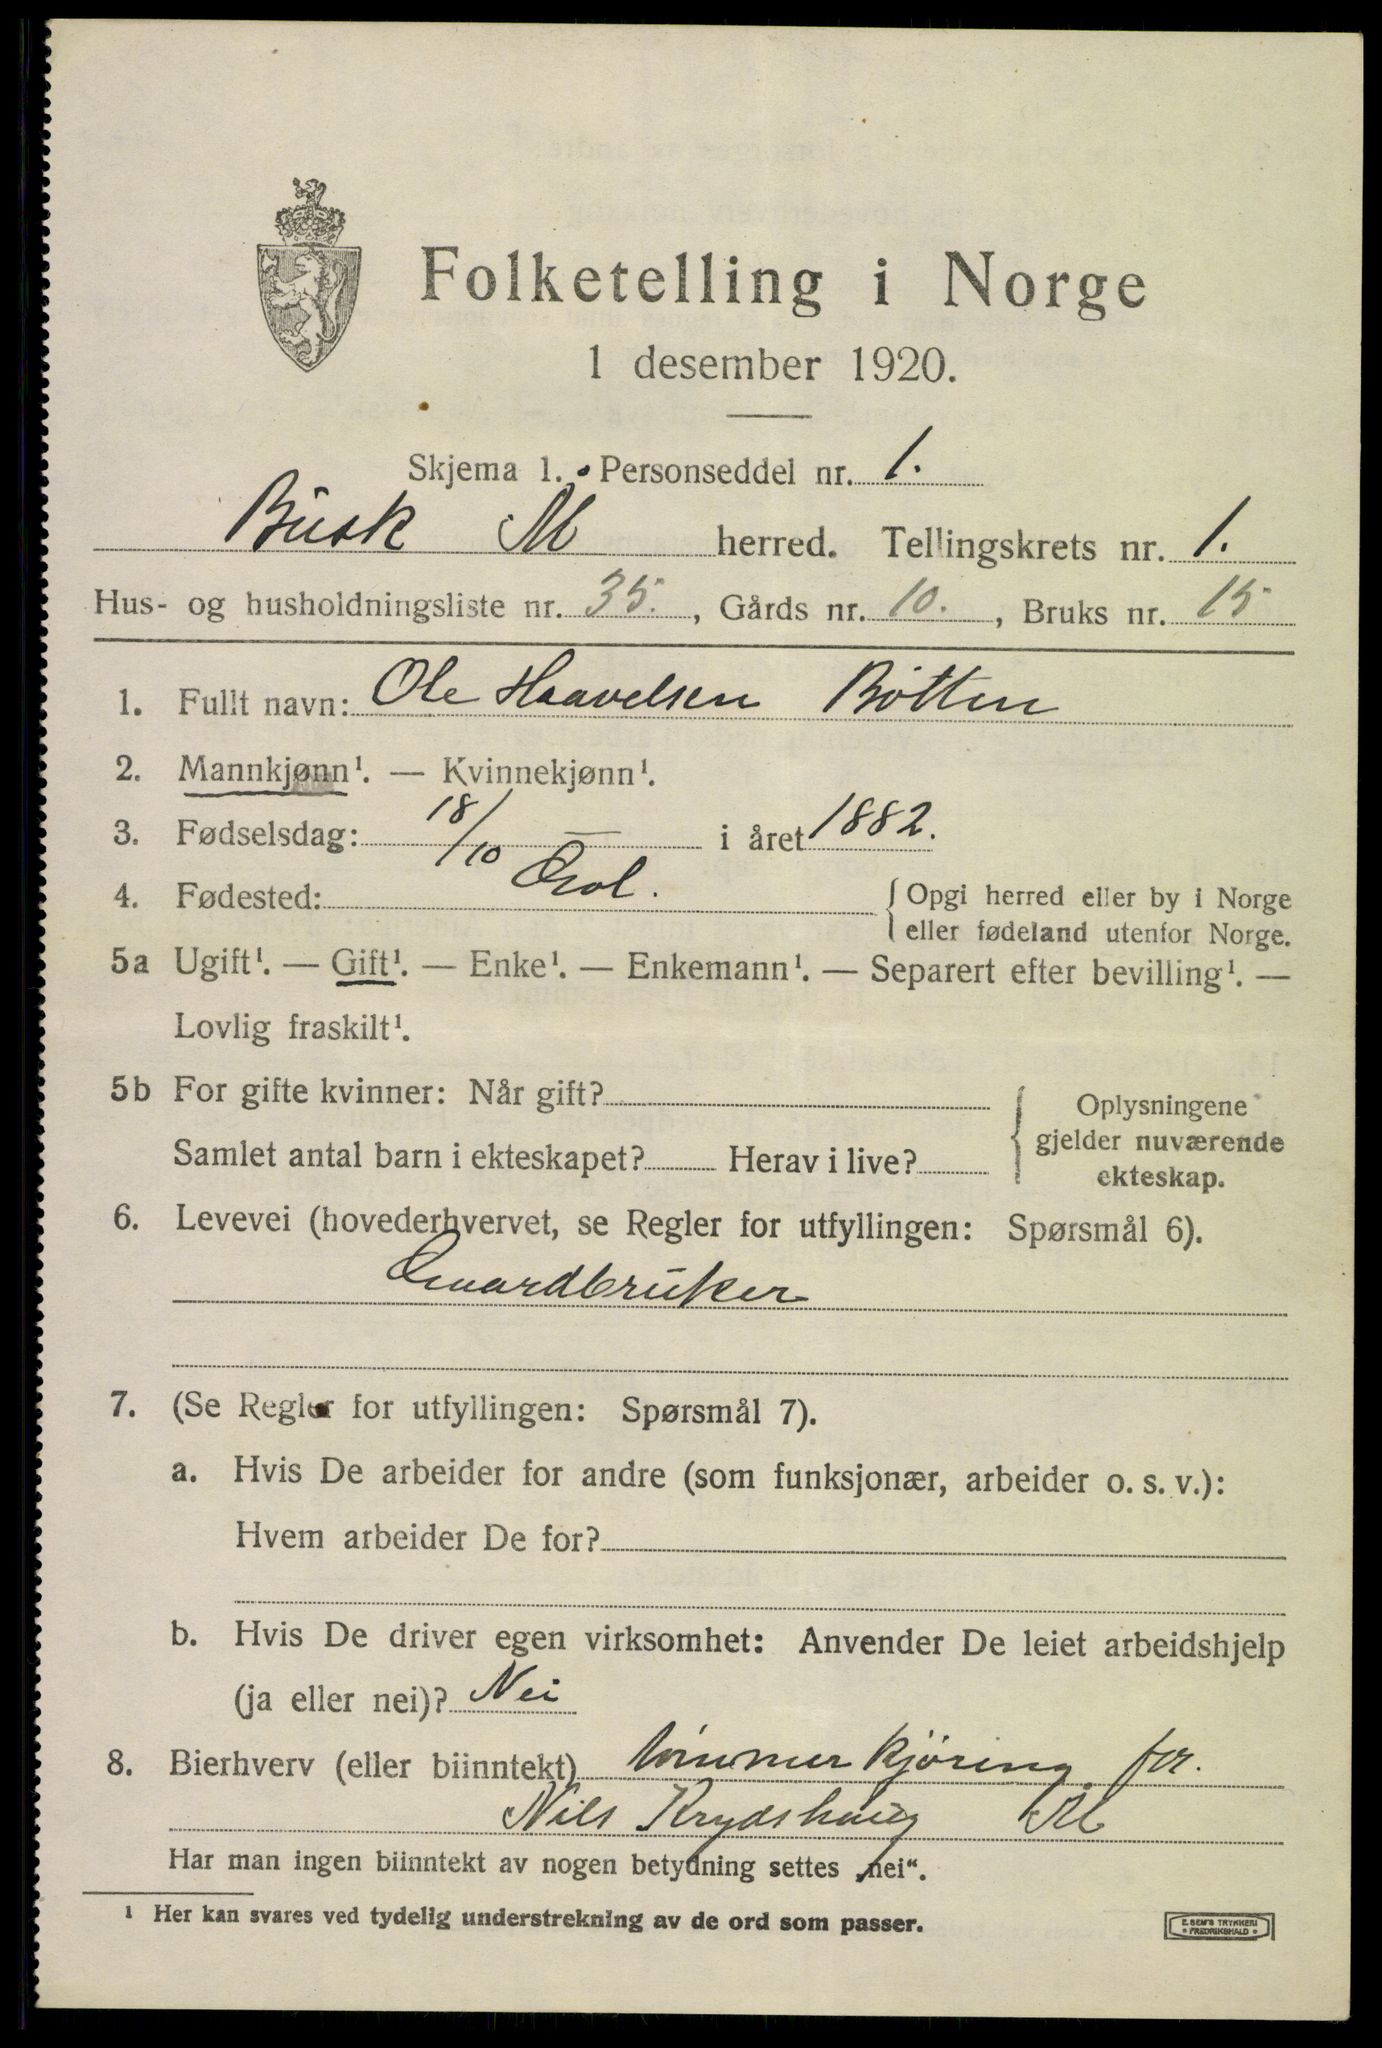 Folketelling i Norge
1 desember 1920.
Skjema 1. Personseddel nr. 1.
Busk Ål herred. Tellingskrets nr. 1.
Hus- og husholdningsliste nr. 35., Gårds nr. 10., Bruks nr. 15
1. Fullt navn: Ole Haavelsen Bøtten
2. Mannkjønn¹. — Kvinnekjønn¹.
3. Fødselsdag: 18/10 — i året 1882.
4. Fødested: { Opgi herred eller by i Norge
eller fødeland utenfor Norge.
5a Ugift¹. — Gift¹. — Enke¹. — Enkemann¹. — Separert efter bevilling¹. —
Lovlig fraskilt¹.
5b For gifte kvinner: Når gift? { Oplysningene
gjelder nuværende
Samlet antal barn i ekteskapet? Herav i live? ekteskap.
6. Levevei (hovederhvervet, se Regler for utfyllingen: Spørsmål 6).
Gaardbruker
7. (Se Regler for utfyllingen: Spørsmål 7).
a. Hvis De arbeider for andre (som funksjonær, arbeider o. s. v.):
Hvem arbeider De for?
b. Hvis De driver egen virksomhet: Anvender De leiet arbeidshjelp
(ja eller nei)? Nei
8. Bierhverv (eller biinntekt) tømmerkjøring for
Nils Krydshaug Ål
Har man ingen biinntekt av nogen betydning settes „nei“.
¹ Her kan svares ved tydelig understrekning av de ord som passer.
E. SEM'S TRYKKERI
• FREDRIKSHALD •